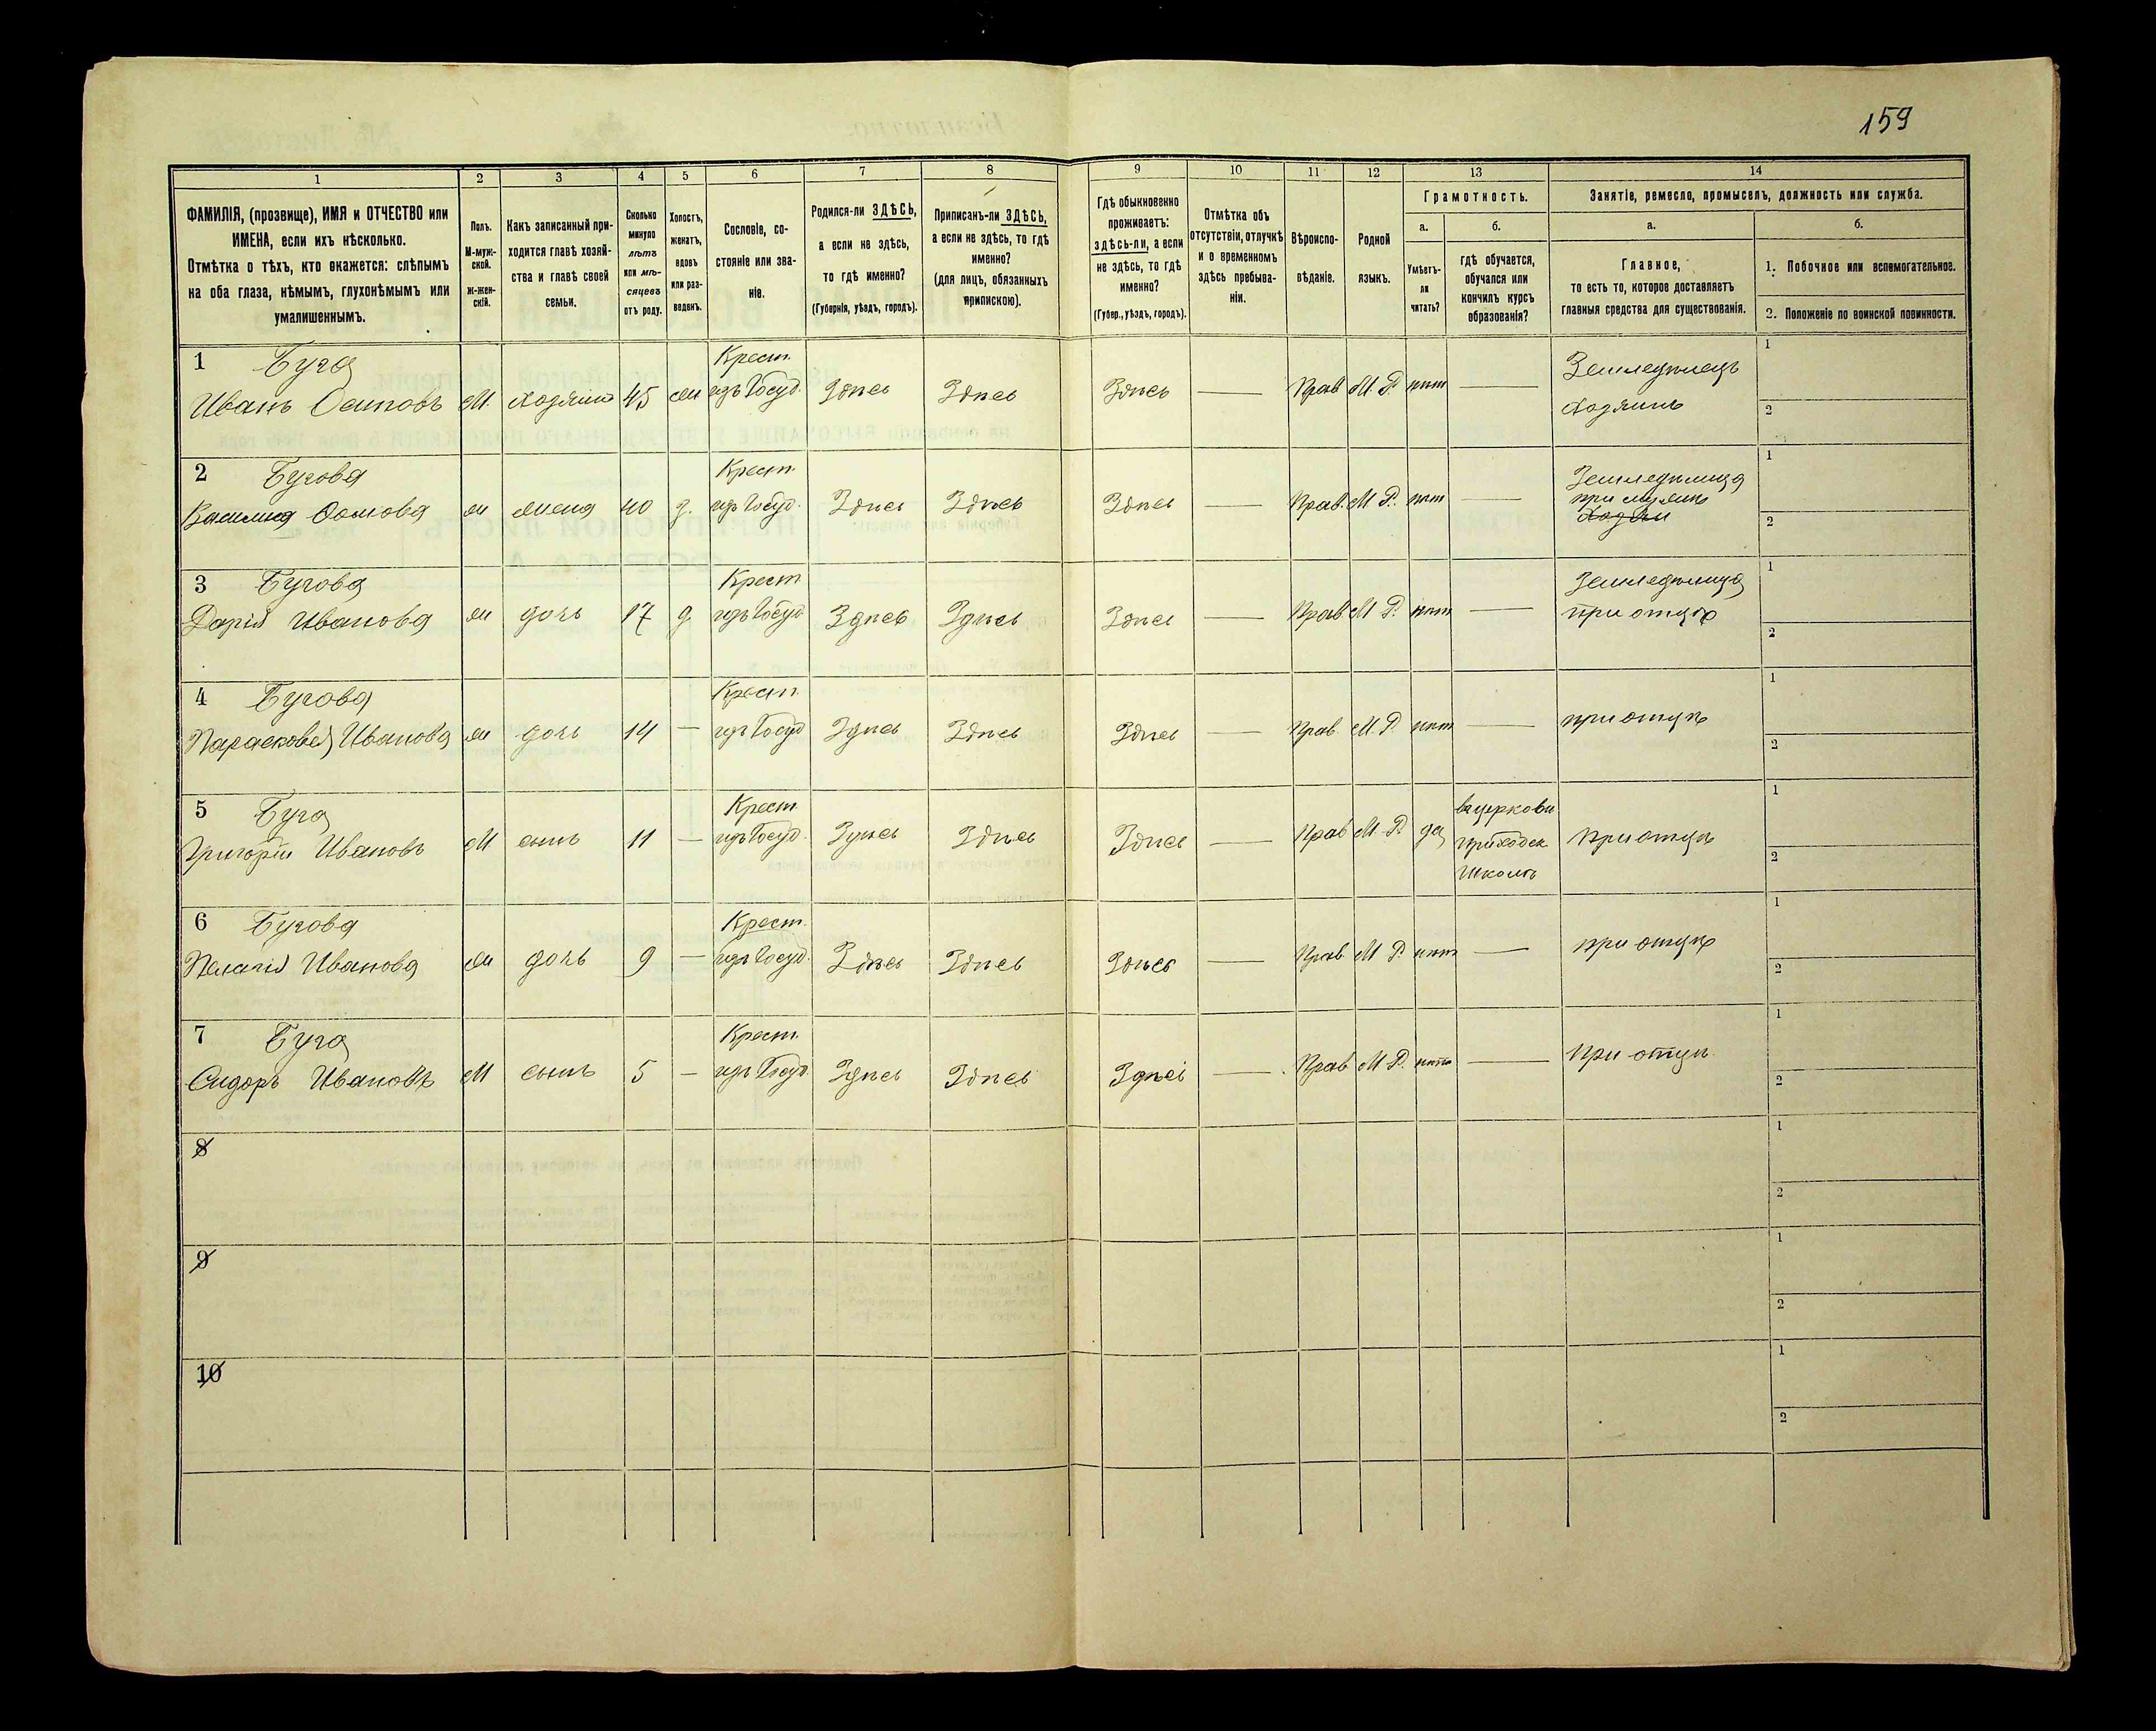 159
1 2 3 4 5 6 7 8 9 10 11 12 13 14
ФАМИЛІЯ, (прозвище), ИМЯ и ОТЧЕСТВО или
ИМЕНА, если ихъ нѣсколько.
Отмѣтка о тѣхъ, кто окажется: слѣпымъ
на оба глаза, нѣмымъ, глухонѣмымъ или
умалишеннымъ.
Полъ.
М-муж-
ской.
ж-жен-
скій.
Какъ записанный при-
ходится главѣ хозяй-
ства и главѣ своей
семьи.
Сколько
минуло
лѣтъ
или мѣ-
сяцевъ
отъ роду.
Холостъ,
женатъ,
вдовъ
или раз-
веденъ.
Сословіе, со-
стояніе или зва-
ніе.
Родился-ли ЗДѢСЬ,
а если не здѣсь,
то гдѣ именно?
(Губернія, уѣздъ, городъ).
Приписанъ-ли ЗДѢСЬ,
а если не здѣсь, то гдѣ
именно?
(для лицъ, обязанныхъ
припискою).
Гдѣ обыкновенно
проживаетъ:
здѣсь-ли, а если
не здѣсь, то гдѣ
именно?
(Губер., уѣздъ, городъ).
Отмѣтка объ
отсутствіи, отлучкѣ
и о временномъ
здѣсь пребыва-
ніи.
Вѣроиспо-
вѣданіе.
Родной
языкъ.
Грамотность.
а.
Умѣетъ-
ли
читать?
б.
гдѣ обучается,
обучался или
кончилъ курсъ
образованія?
Занятіе, ремесло, промыселъ, должность или служба.
а.
Главное,
то есть то, которое доставляетъ
главныя средства для существованія.
б.
1. Побочное или вспомогательное.
2. Положеніе по воинской повинности.
1 Буга Крест. Земледѣлецъ 1
Иванъ Осиповъ М Хозяинъ 45 ж изъ Госуд. Здѣсь Здѣсь Здѣсь — Прав М. Р. нѣт — Хозяинъ 2
2 Бугова Крест. Земледѣлица 1
Осипова ж жена 40 з. изъ Госуд. Здѣсь Здѣсь Здѣсь — Прав. М. Р. нѣт — при мужѣ
Хозяи 2
3 Бугова Крест Земледѣлица 1
Дарія Иванова ж дочь 17 д изъ Госуд Здѣсь Здѣсь Здѣсь — Прав М. Р. нѣт — при отцѣ 2
4 Бугова Крест. 1
Парасковея Иванова ж дочь 14 — изъ Госуд Здѣсь Здѣсь Здѣсь — Прав. М. Р. нѣт — при отцѣ 2
5 Буга Крест въ церковн 1
Григорій Ивановъ М сынъ 11 — изъ Госуд. Здѣсь Здѣсь Здѣсь — Прав М. Р. да приходск при отцѣ 2
школѣ
6 Бугова Крест. 1
Пелагія Иванова ж дочь 9 — изъ Госуд. Здѣсь Здѣсь Здѣсь — Прав. М. Р. нѣт — при отцѣ 2
7 Буга Крест. 1
Сидоръ Ивановъ М сынъ 5 — изъ Госуд. Здѣсь Здѣсь Здѣсь — Прав М. Р. нѣт — при отцѣ 2
8 1
2
9 1
2
10 1
2